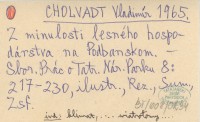 CHOLVADT Vladimír 1965.
Z minulosti lesného hospo-
dárstva na Podbanskom. –
Sbor. Prác o Tatr. Nár. Parku 8:
217-230, ilustr., Res., Sum.,
Zsf.